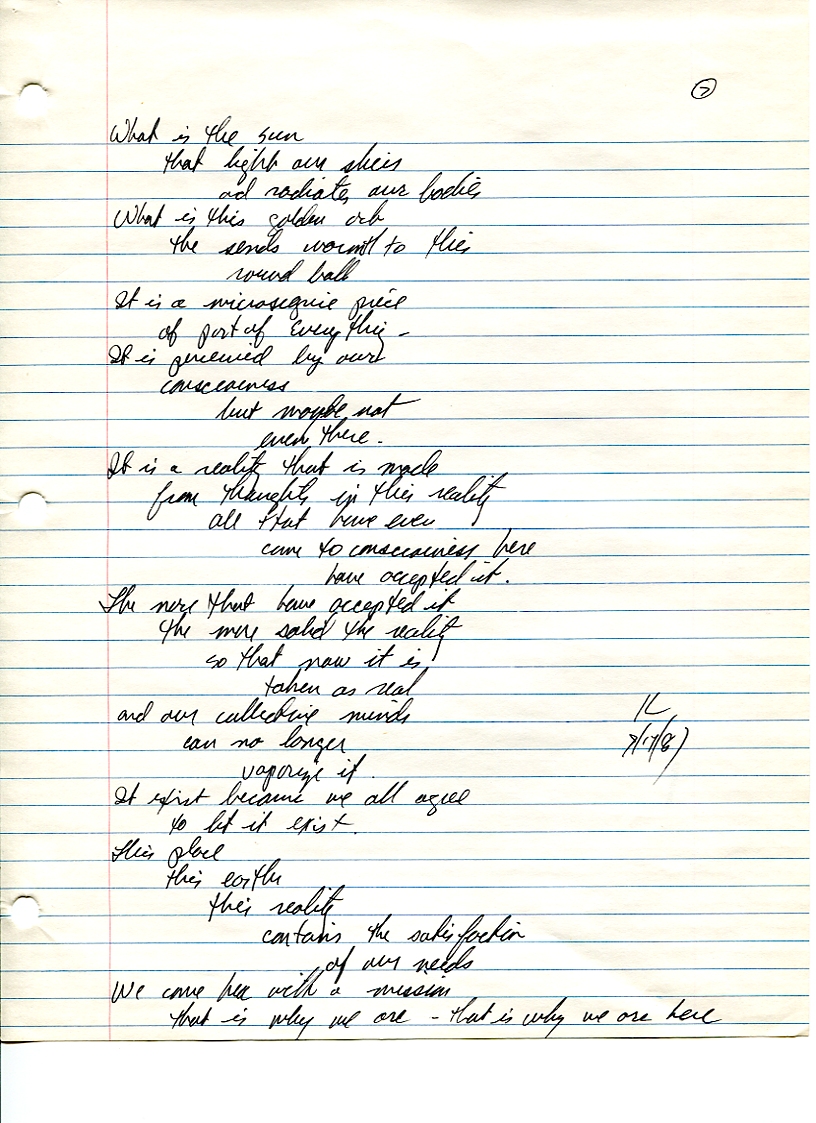 What is the sun
that light our skies
ad radiates our bodies
What is this golden orb
the sends warmth to this
round ball
It is a piece
of part of Everything -
It is perceived by our
consciousness
but maybe not
even there.
It is a reality that is made
from thoughts in this reality
all that have ever
come to consciousness here
have accepted it.
The more that have accepted it
the more solid the reality
so that now it is
taken as real
and our collective minds
can no longer
vaporize it.
It exist because we all agree
to let it exist.
This place
this earth
this reality
contains the satisfaction
of our needs
We come here with a mission
that is why we are - that is why we are here